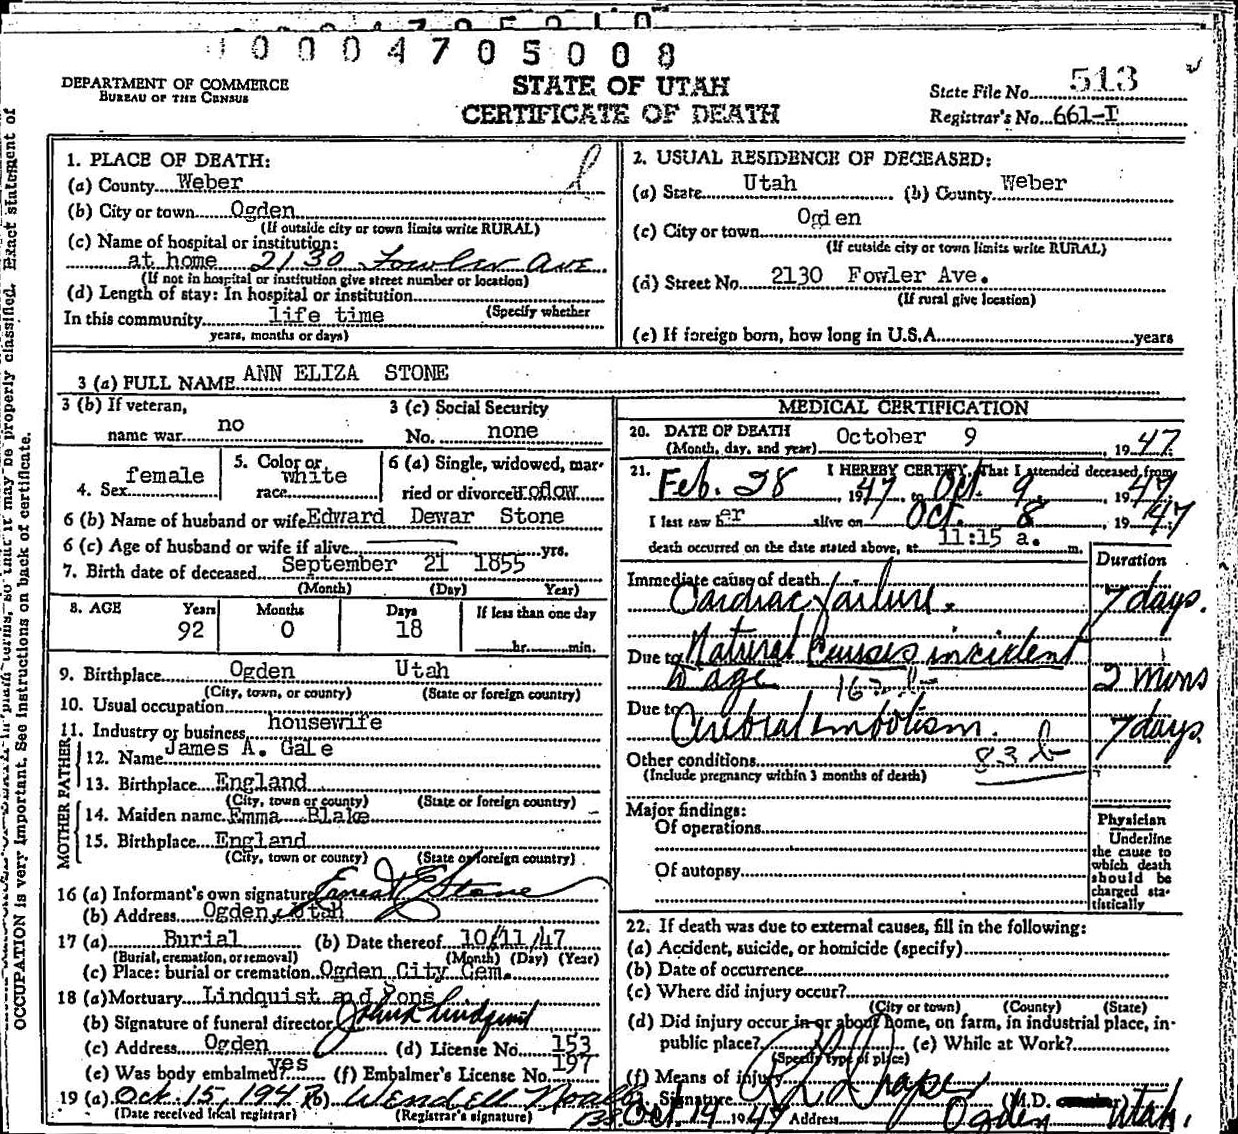 0004705008
DEPARTMENT OF COMMERCE
BUREAU OF THE CENSUS
STATE OF UTAH
CERTIFICATE OF DEATH
State File No. 513
Registrar's No. 661-I
1. PLACE OF DEATH:
(a) County Weber
(b) City or town Ogden
(If outside city or town limits write RURAL)
(c) Name of hospital or institution:
at home 2130 Fowler Ave.
(If not in hospital or institution give street number or location)
(d) Length of stay: In hospital or institution
(Specify whether
In this community life time
years, months or days)
2. USUAL RESIDENCE OF DECEASED:
(a) State Utah (b) County Weber
(c) City or town Ogden
(If outside city or town limits write RURAL)
(d) Street No. 2130 Fowler Ave.
(If rural give location)
(e) If foreign born, how long in U.S.A. years
3 (a) FULL NAME ANN ELIZA STONE
3 (b) If veteran, name war no
3 (c) Social Security No. none
4. Sex female
5. Color or race white
6 (a) Single, widowed, married or divorced
6 (b) Name of husband or wife Edward Dewar Stone
6 (c) Age of husband or wife if alive yrs.
7. Birth date of deceased September 21 1855
(Month) (Day) Year)
8. AGE Years Months Days If less than one day
92 0 18 hr. min.
9. Birthplace Ogden Utah
(City, town, or county) (State or foreign country)
10. Usual occupation
housewife
11. Industry or business
FATHER
12. Name James A. Gale
13. Birthplace England
(City, town or county) (State or foreign country)
MOTHER
14. Maiden name Emma Blake
15. Birthplace England
(City, town or county) (State or foreign country)
16 (a) Informant's own signature Ernest E Stone
(b) Address Ogden, Utah
17 (a) Burial (b) Date thereof 10/11/47
(Burial, cremation, or removal) (Month) (Day) (Year)
(c) Place: burial or cremation Ogden City Cem.
18 (a) Mortuary Lindquist and Sons
(b) Signature of funeral director John Lindquist
(c) Address Ogden (d) License No. 153
197
(e) Was body embalmed? yes (f) Embalmer's License No.
19 (a) Oct. 15, 1947 (b) Wendell
(Date received local registrar) (Registrar's signature)
MEDICAL CERTIFICATION
20. DATE OF DEATH October 9 1947
(Month, day, and year)
21. I HEREBY CERTIFY, That I attended deceased from
Feb. 28, 1947 to Oct. 9, 1947
I last saw her alive on Oct. 8, 1947
death occurred on the date stated above, at 11:15 a. m.
Duration
Immediate cause of death
Cardiac failure. 7 days.
Due to Natural Causes incident
to age 2 mins
162 b
Due to
Cerebral embolism. 7 days.
83 b
Other conditions
(Include pregnancy within 3 months of death)
Major findings:
Of operations
Of autopsy
Physician
Underline the cause to which death should be charged statistically
22. If death was due to external causes, fill in the following:
(a) Accident, suicide, or homicide (specify)
(b) Date of occurrence
(c) Where did injury occur?
(City or town) (County) (State)
(d) Did injury occur in or about home, on farm, in industrial place, in public place? (e) While at Work?
(Specify type of place)
(f) Means of injury
Signature (M.D.
Oct. 14 1947 Address Ogden Utah.
OCCUPATION is very important. See instructions on back of certificate.
so that it may be properly classified. Exact statement of